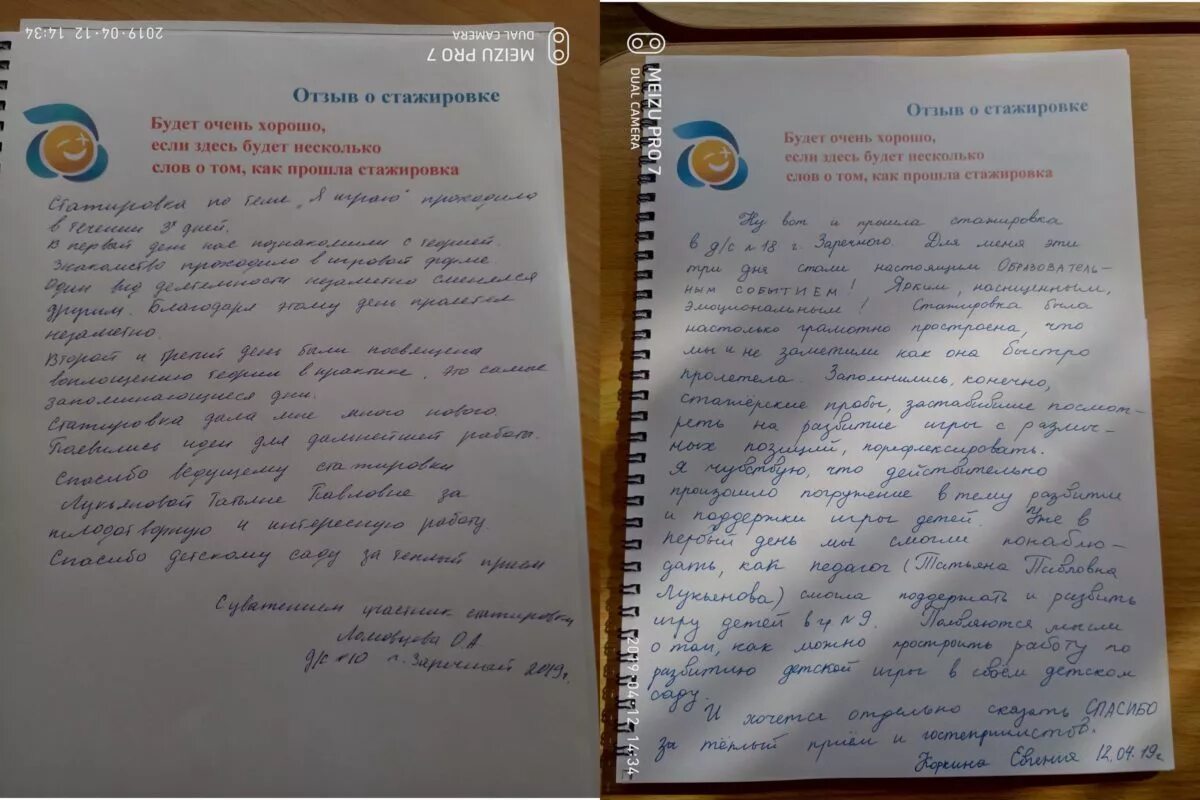 2019·04·12 14:34
MEIZU PRO 7
DUAL CAMERA
Отзыв о стажировке
Будет очень хорошо,
если здесь будет несколько
слов о том, как прошла стажировка
Стажировка по теме „Я играю" проходило
в течении 3х дней.
В первый день нас познакомили с теорией.
Знакомство проходило в игровой форме.
Один вид деятельности незаметно сменялся
другим. Благодаря этому день пролетел
незаметно.
Второй и третий день были посвящена
воплощению теории в практике, это самое
запоминающиеся дни.
Стажировка дала мне много нового.
Появились идеи для дальнейшей работы.
Спасибо ведущему стажировки
Лукьяновой Татьяне Павловне за
плодотворную и интересную работу.
Спасибо детскому саду за теплый прием
С уважением участник стажировки
Ломовцева О.А.
д/с №10 г. Заречный 2019г.
MEIZU PRO 7
DUAL CAMERA
Отзыв о стажировке
Будет очень хорошо,
если здесь будет несколько
слов о том, как прошла стажировка
Ну вот и прошла стажировка
в д/с №18 г. Заречного. Для меня эти
три дня стали настоящим ОБРАЗОВАТЕЛЬ-
НЫМ СОБЫТИЕМ! Ярким, насыщенным,
эмоциональным! Стажировка была
настолько грамотно простроена, что
мы и не заметили как она быстро
пролетела. Запомнились, конечно,
стажёрские пробы, заставившие посмот-
реть на развитие игры с различ-
ных позиций, порефлексировать.
Я чувствую, что действительно
произошло погружение в тему развития
и поддержки игры детей. Уже в
первый день мы смогли понаблю-
дать, как педагог (Татьяна Павловна
Лукьенова) смогла поддержать и развить
игру детей в гр №9. Появляются мысли
о том, как можно простроить работу по
развитию детской игры в своём детском
саду.
И хочется отдельно сказать СПАСИБО
за тёплый приём и гостеприимство.
Коркина Евгения 12.04.19г
2019·04·12 14:34